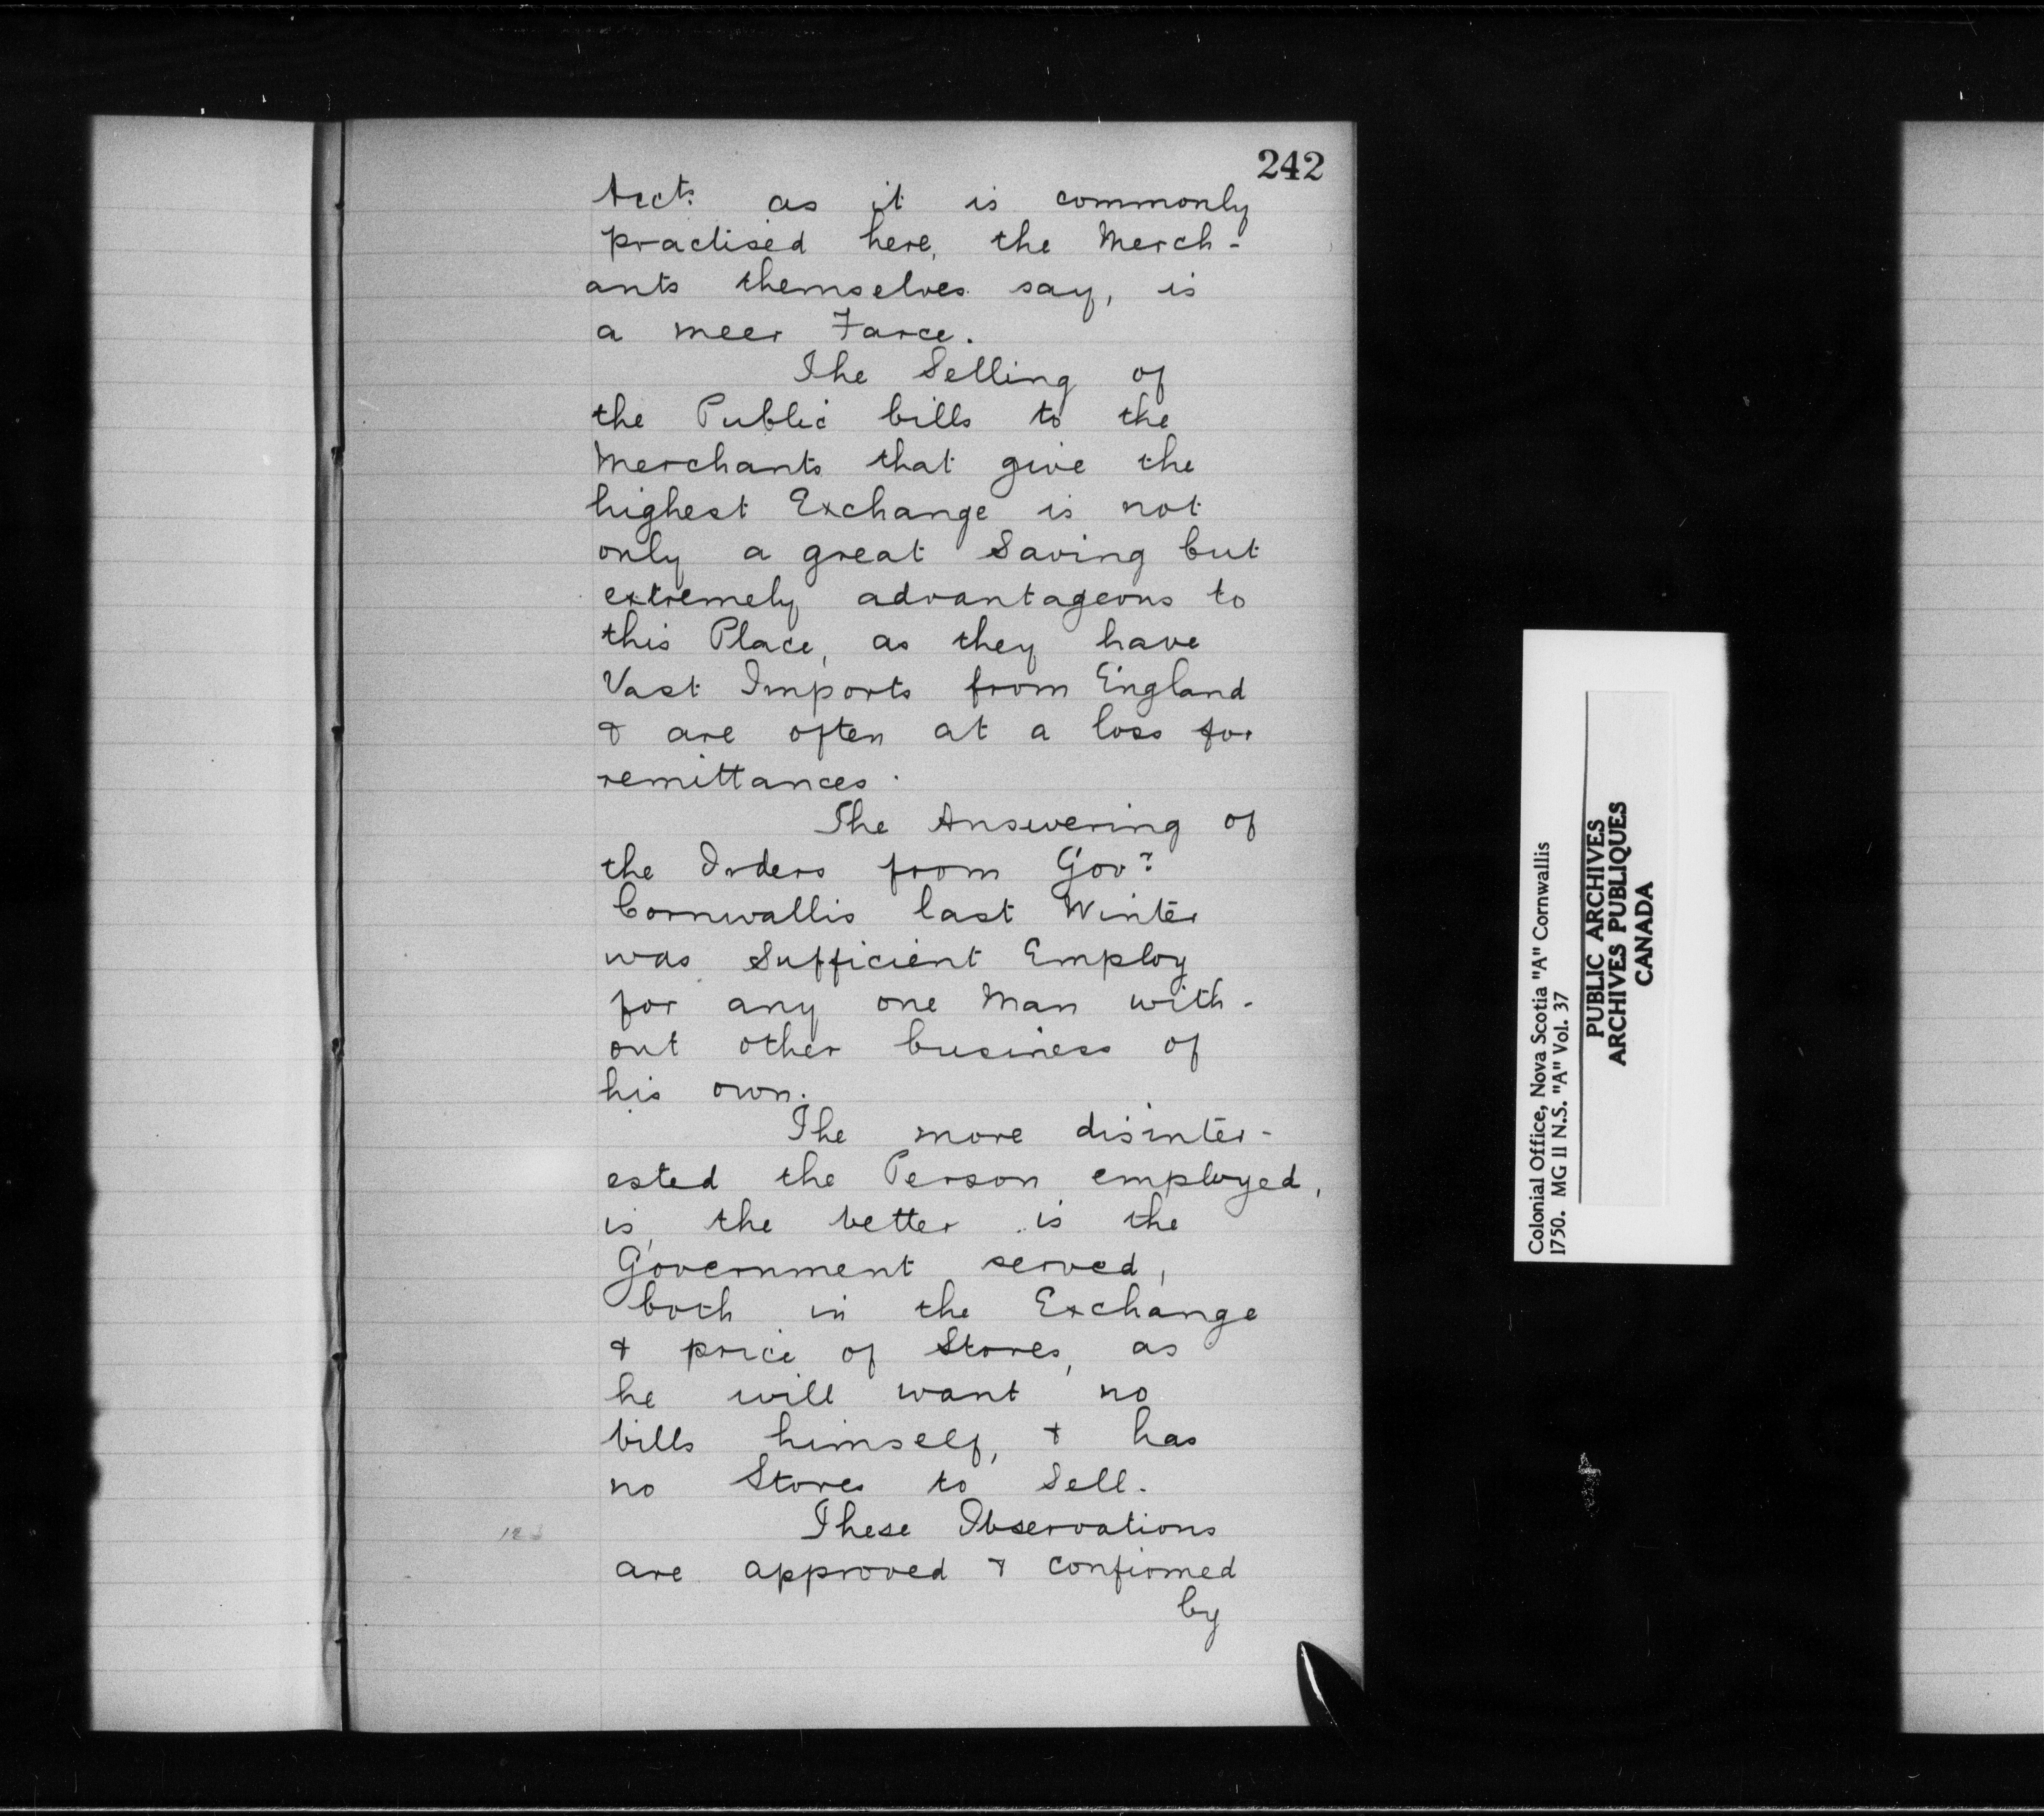 242
Acct⁠s as it is commonly
practised here, the Merch-
ants themselves say, is
a meer Farce.
The Selling of
the Public bills to the
Merchants that give the
highest Exchange is not
only a great Saving but
extremely advantageous to
this Place, as they have
Vast Imports from England
& are often at a loss for
remittances.
The Answering of
the Orders from Govr
Cornwallis last Winter
was Sufficient Employ
for any one Man with-
out other business of
his own.
The more disinter-
ested the Person employed,
is, the better is the
Government served,
both in the Exchange
& price of Stores, as
he will want no
bills himself, & has
no Stores to Sell.
These Observations
are approved & confirmed
by
Colonial Office, Nova Scotia "A" Cornwallis
1750. MG 11 N.S. "A" Vol. 37
PUBLIC ARCHIVES
ARCHIVES PUBLIQUES
CANADA